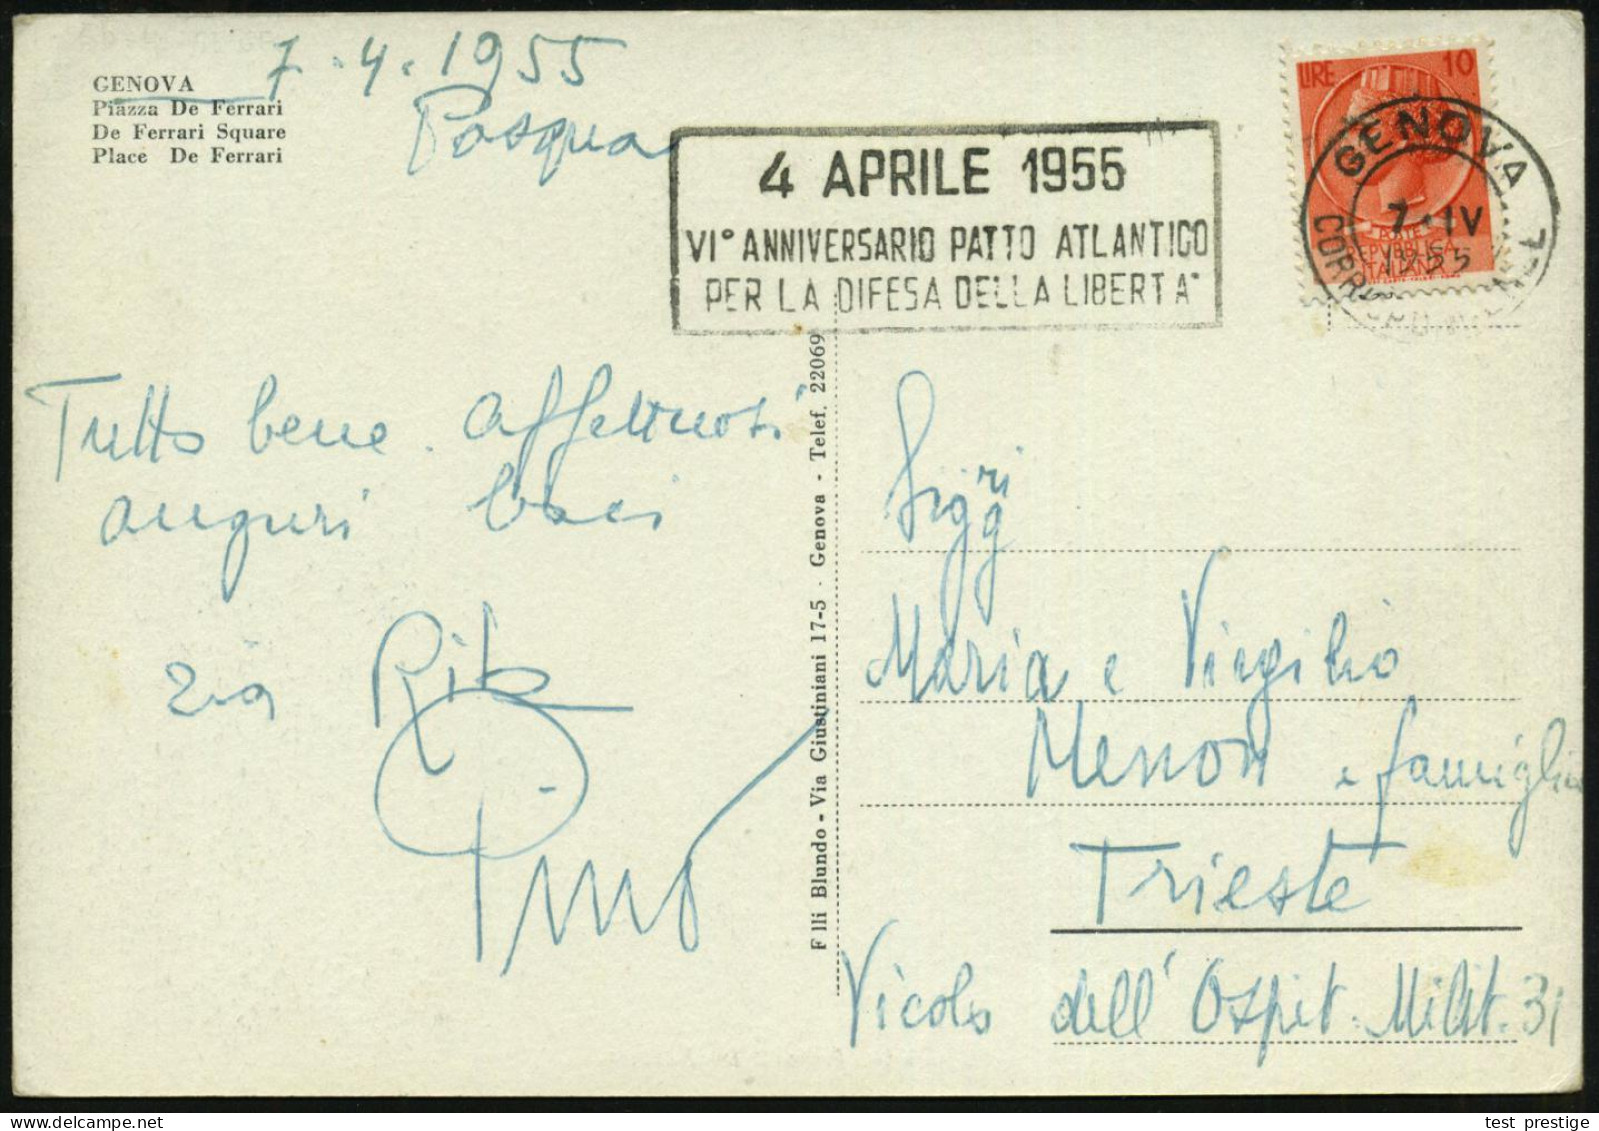 GENOVA
Piazza De Ferrari
De Ferrari Square
Place De Ferrari
7.4.1955
Pasqua
4 APRILE 1955
VI° ANNIVERSARIO PATTO ATLANTICO
PER LA DIFESA DELLA LIBERTA'
LIRE 10
POSTE
REPVBBLICA
ITALIANA
GENOVA
7·IV
1955
Tutto bene. Affettuosi
auguri baci
zia Rita
Pino
F lli Blundo - Via Giustiniani 17-5 · Genova - Telef. 22069
Sigg.ri
Maria e Virgilio
Menon e famiglia
Trieste
Vicolo dell'Ospit. Milit. 31
test prestige